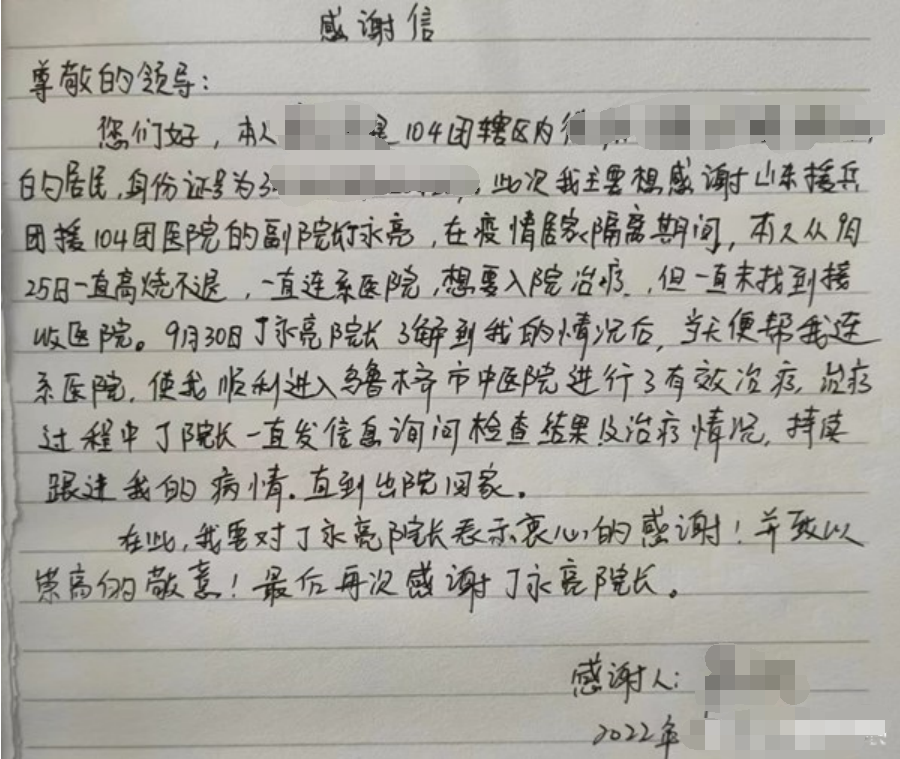 感谢信
尊敬的领导：
您们好，本人 104团辖区内
的居民，身份证号为3 ，此次我主要想感谢山东援兵
团援104团医院的副院长丁永亮，在疫情居家隔离期间，本人从9月
25日一直高烧不退，一直连系医院，想要入院治疗，但一直未找到接
收医院。9月30日丁永亮院长了解到我的情况后，当天便帮我连
系医院，使我顺利进入乌鲁木齐市中医院进行了有效治疗，治疗
过程中丁院长一直发信息询问检查结果及治疗情况，持续
跟进我的病情。直到出院回家。
在此，我要对丁永亮院长表示衷心的感谢！并致以
崇高的敬意！最后再次感谢丁永亮院长。
感谢人：
2022年